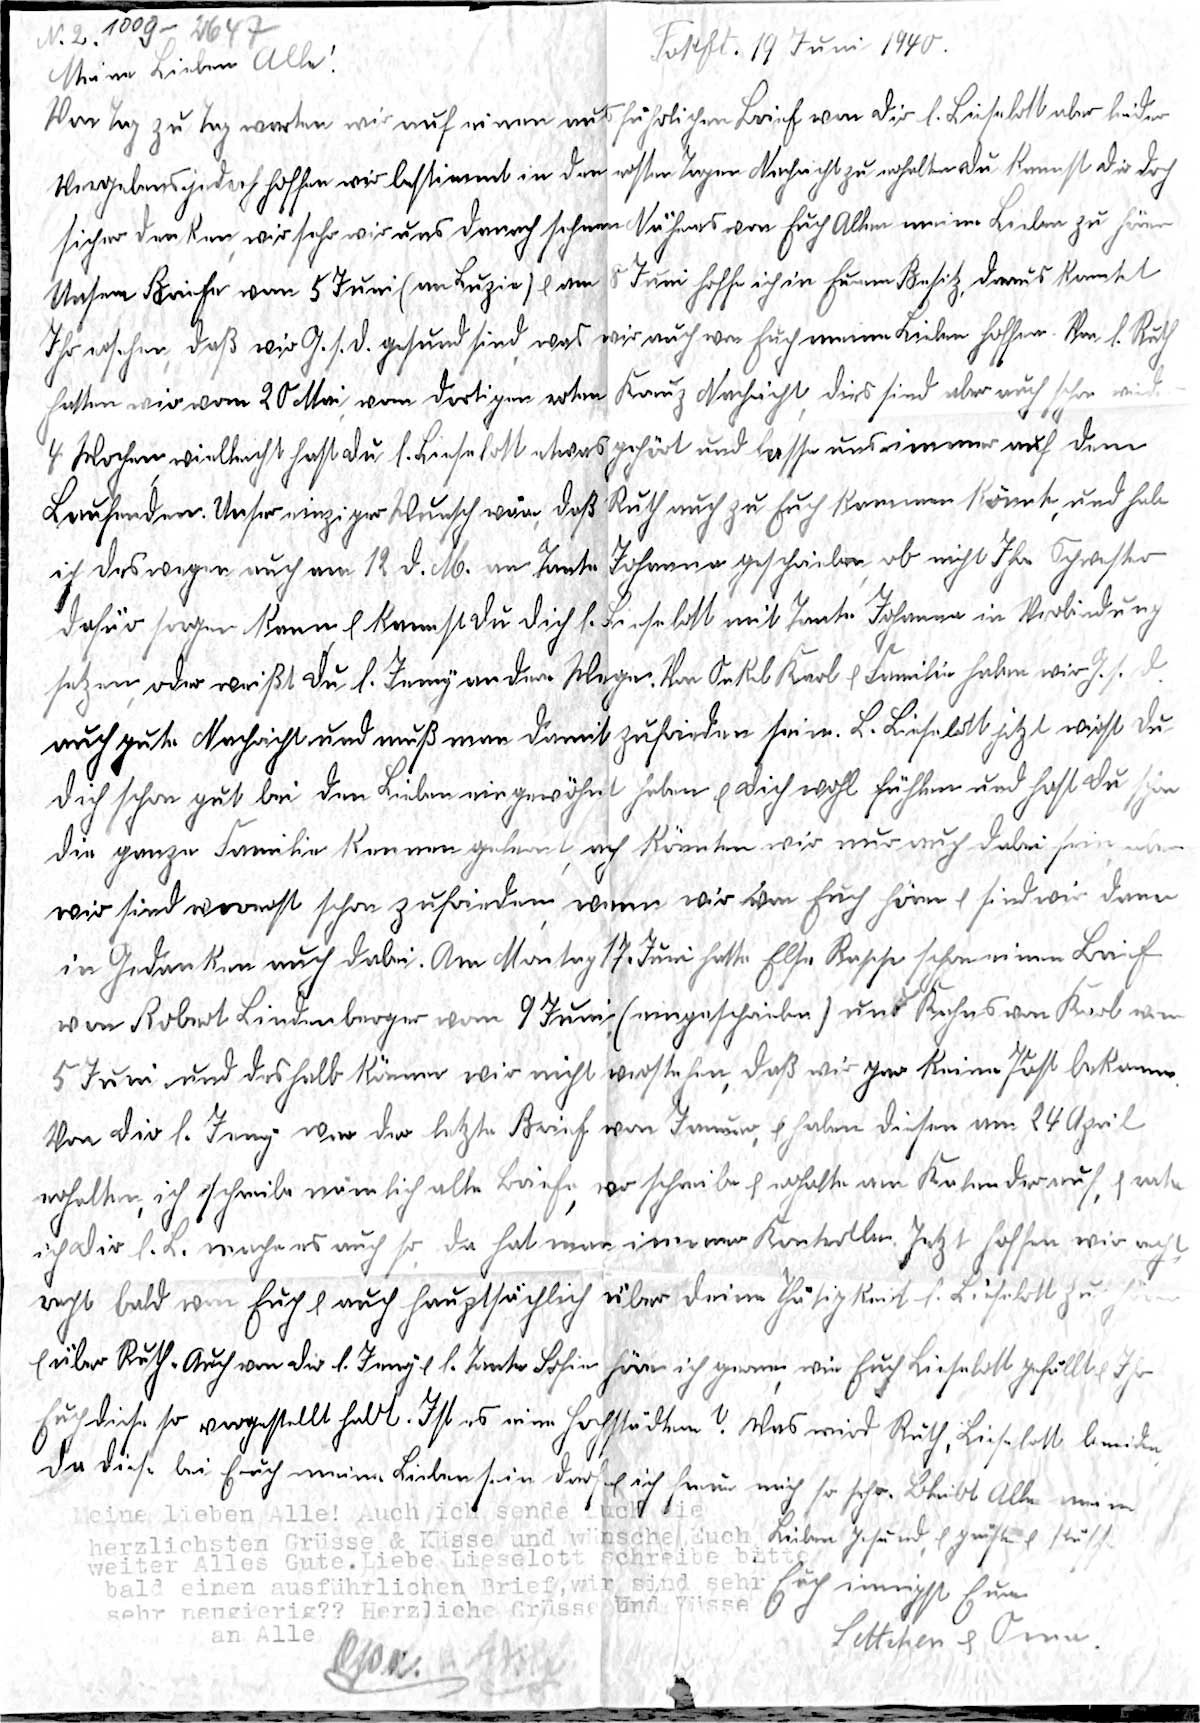 N. 2. 1009 - 2647
Frkft. 19 Juni 1940.
Meine Lieben Alle!
Von Tag zu Tag warten wir auf einen ausführlichen Brief von Dir l. Lieselott aber leider
Vergebens, jedoch hoffen wir bestimmt in den ersten Tagen Nachricht zu erhalten. Du kannst Dir doch
sicher denken, wie sehr wir uns danach sehnen Näheres von Euch Allen meine Lieben zu hören
Unsere Briefe vom 5 Juni (an Luzie) & am 8 Juni hoffe ich in Euren Besitz, daraus konntet
Ihr ersehen, daß wir G. s. d. gesund sind, was wir auch von Euch meine Lieben hoffen. Von l. Ruth
hatten wir vom 20 Mai vom dortigen roten Kreuz Nachricht, dies sind aber auch schon wied.
4 Wochen, vielleicht hast Du l. Lieselott etwas gehört und lasse uns immer auf dem
Laufenden. Unser einziger Wunsch wäre, daß Ruth auch zu Euch kommen könnte, und habe
ich deswegen auch am 12 d. M. an Tante Johanna geschrieben, ob nicht Ihre Schwester
dafür sorgen kann & kannst Du Dich l. Lieselott mit Tante Johanna in Verbindung
setzen, oder weißt Du l. Jenny andere Wege. Von Onkel Karl & Familie haben wir G. s. d.
auch gute Nachricht und muß man damit zufrieden sein. L. Lieselott jetzt wirst Du
Dich schon gut bei den Lieben eingewöhnt haben & Dich wohl fühlen und hast Du schon
die ganze Familie kennen gelernt, ach könnten wir nur auch dabei sein, aber
wir sind vorerst schon zufrieden, wenn wir von Euch hören & sind wir dann
in Gedanken auch dabei. Am Montag 17. Juni hatte Else Rasche schon einen Brief
von Robert Lindenberger vom 9 Juni (eingeschrieben) und Kahns von Karl vom
5 Juni und deshalb können wir nicht verstehen, daß wir gar keine Post bekommen.
Von Dir l. Jeny war der letzte Brief von Januar, & haben diesen am 24 April
erhalten, ich schreibe nämlich alle Briefe, wo schreibe & erhalte am Kalender auf, & rate
ich Dir l. L. mache es auch so, da hat man immer Kontrolle. Jetzt hoffen wir recht,
recht bald von Euch & auch hauptsächlich über Deine Thätigkeit l. Lieselott zu hören
& über Ruth. Auch von Dir l. Jeny & l. Tante Sofie höre ich gerne, wie Euch Lieselott gefällt & Ihr
Euch diese so vorgestellt habt. Ist es eine Hochstädten? Was wird Ruth, Lieselott beneiden,
da diese bei Euch meine Lieben sein darf & ich freue mich so sehr. Bleibt Alle meine
Lieben gesund, & grüße & küsse
Euch innigst Eure
Settchen & Oma.
Meine lieben Alle! Auch ich sende Euch die
herzlichsten Grüsse & Küsse und wünsche Euch
weiter Alles Gute. Liebe Lieselott schreibe bitte
bald einen ausführlichen Brief, wir sind sehr
sehr neugierig?? Herzliche Grüsse und Küsse
an Alle
Opa.